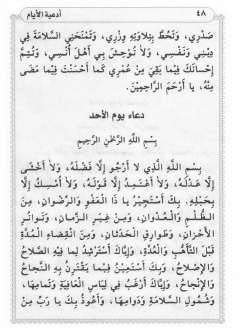 ٤٨ أدعية الأيام
صَدْرِي، وَتَحُطَّ بِتِلاَوَتِهِ وِزْرِي، وَتَمْنَحَنِي السَّلاَمَةَ فِي
دِينِي وَنَفْسِي، وَلاَ تُوحِشْ بِي أَهْلَ أُنْسِي، وَتُتِمَّ
إِحْسَانَكَ فِيْمَا بَقِيَ مِنْ عُمْرِي كَمَا أَحْسَنْتَ فِيْمَا مَضَى
مِنْهُ، يَا أَرْحَمَ الرَّاحِمِيْنَ.
دعاء يوم الأحد
بِسْمِ اللَّهِ الرَّحْمَنِ الرَّحِيْمِ
بِسْمِ اللَّهِ الَّذِي لاَ أَرْجُو إِلَّا فَضْلَهُ، وَلاَ أَخْشَى
إِلَّا عَدْلَهُ، وَلاَ أَعْتَمِدُ إِلَّا قَوْلَهُ، وَلاَ أُمْسِكُ إِلَّا
بِحَبْلِهِ. بِكَ أَسْتَجِيْرُ يَا ذَا الْعَفْوِ وَالرِّضْوَانِ، مِنَ
الظُّلْمِ وَالْعُدْوَانِ، وَمِنْ غِيَرِ الزَّمَانِ، وَتَوَاتُرِ
الأَحْزَانِ، وَطَوَارِقِ الْحَدَثَانِ، وَمِنَ انْقِضَاءِ الْمُدَّةِ
قَبْلَ التَّأَهُّبِ وَالْعُدَّةِ، وَإِيَّاكَ أَسْتَرْشِدُ لِمَا فِيْهِ الصَّلاَحُ
وَالإِصْلاَحُ، وَبِكَ أَسْتَعِيْنُ فِيْمَا يَقْتَرِنُ بِهِ النَّجَاحُ
وَالإِنْجَاحُ، وَإِيَّاكَ أَرْغَبُ فِي لِبَاسِ الْعَافِيَةِ وَتَمَامِهَا،
وَشُمُولِ السَّلاَمَةِ وَدَوَامِهَا، وَأَعُوذُ بِكَ يَا رَبِّ مِنْ